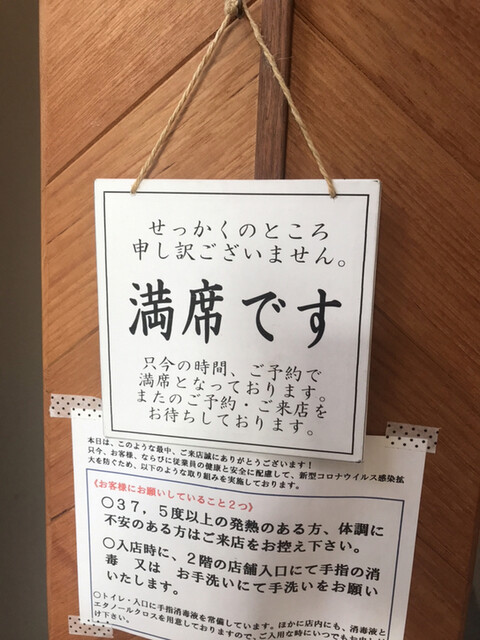 せっかくのところ
申し訳ございません。
満席です
只今の時間、ご予約で
満席となっております。
またのご予約・ご来店を
お待ちしております。
本日は、このような最中、ご来店誠にありがとうございます！
只今、お客様、ならびに従業員の健康と安全に配慮して、新型コロナウイルス感染拡
大を防ぐため、以下のような取り組みを実施しております。
《お客様にお願いしていること２つ》
〇３７，５度以上の発熱のある方、体調に
不安のある方はご来店をお控え下さい。
〇入店時に、２階の店舗入口にて手指の消
毒　又は　お手洗いにて手洗いをお願い
いたします。
〇トイレ・入口に手指消毒液を常備しています。ほかに店内にも、消毒液と
エタノールクロスを用意しておりますので、ご入用な時にいつでもお申し
け下さい。